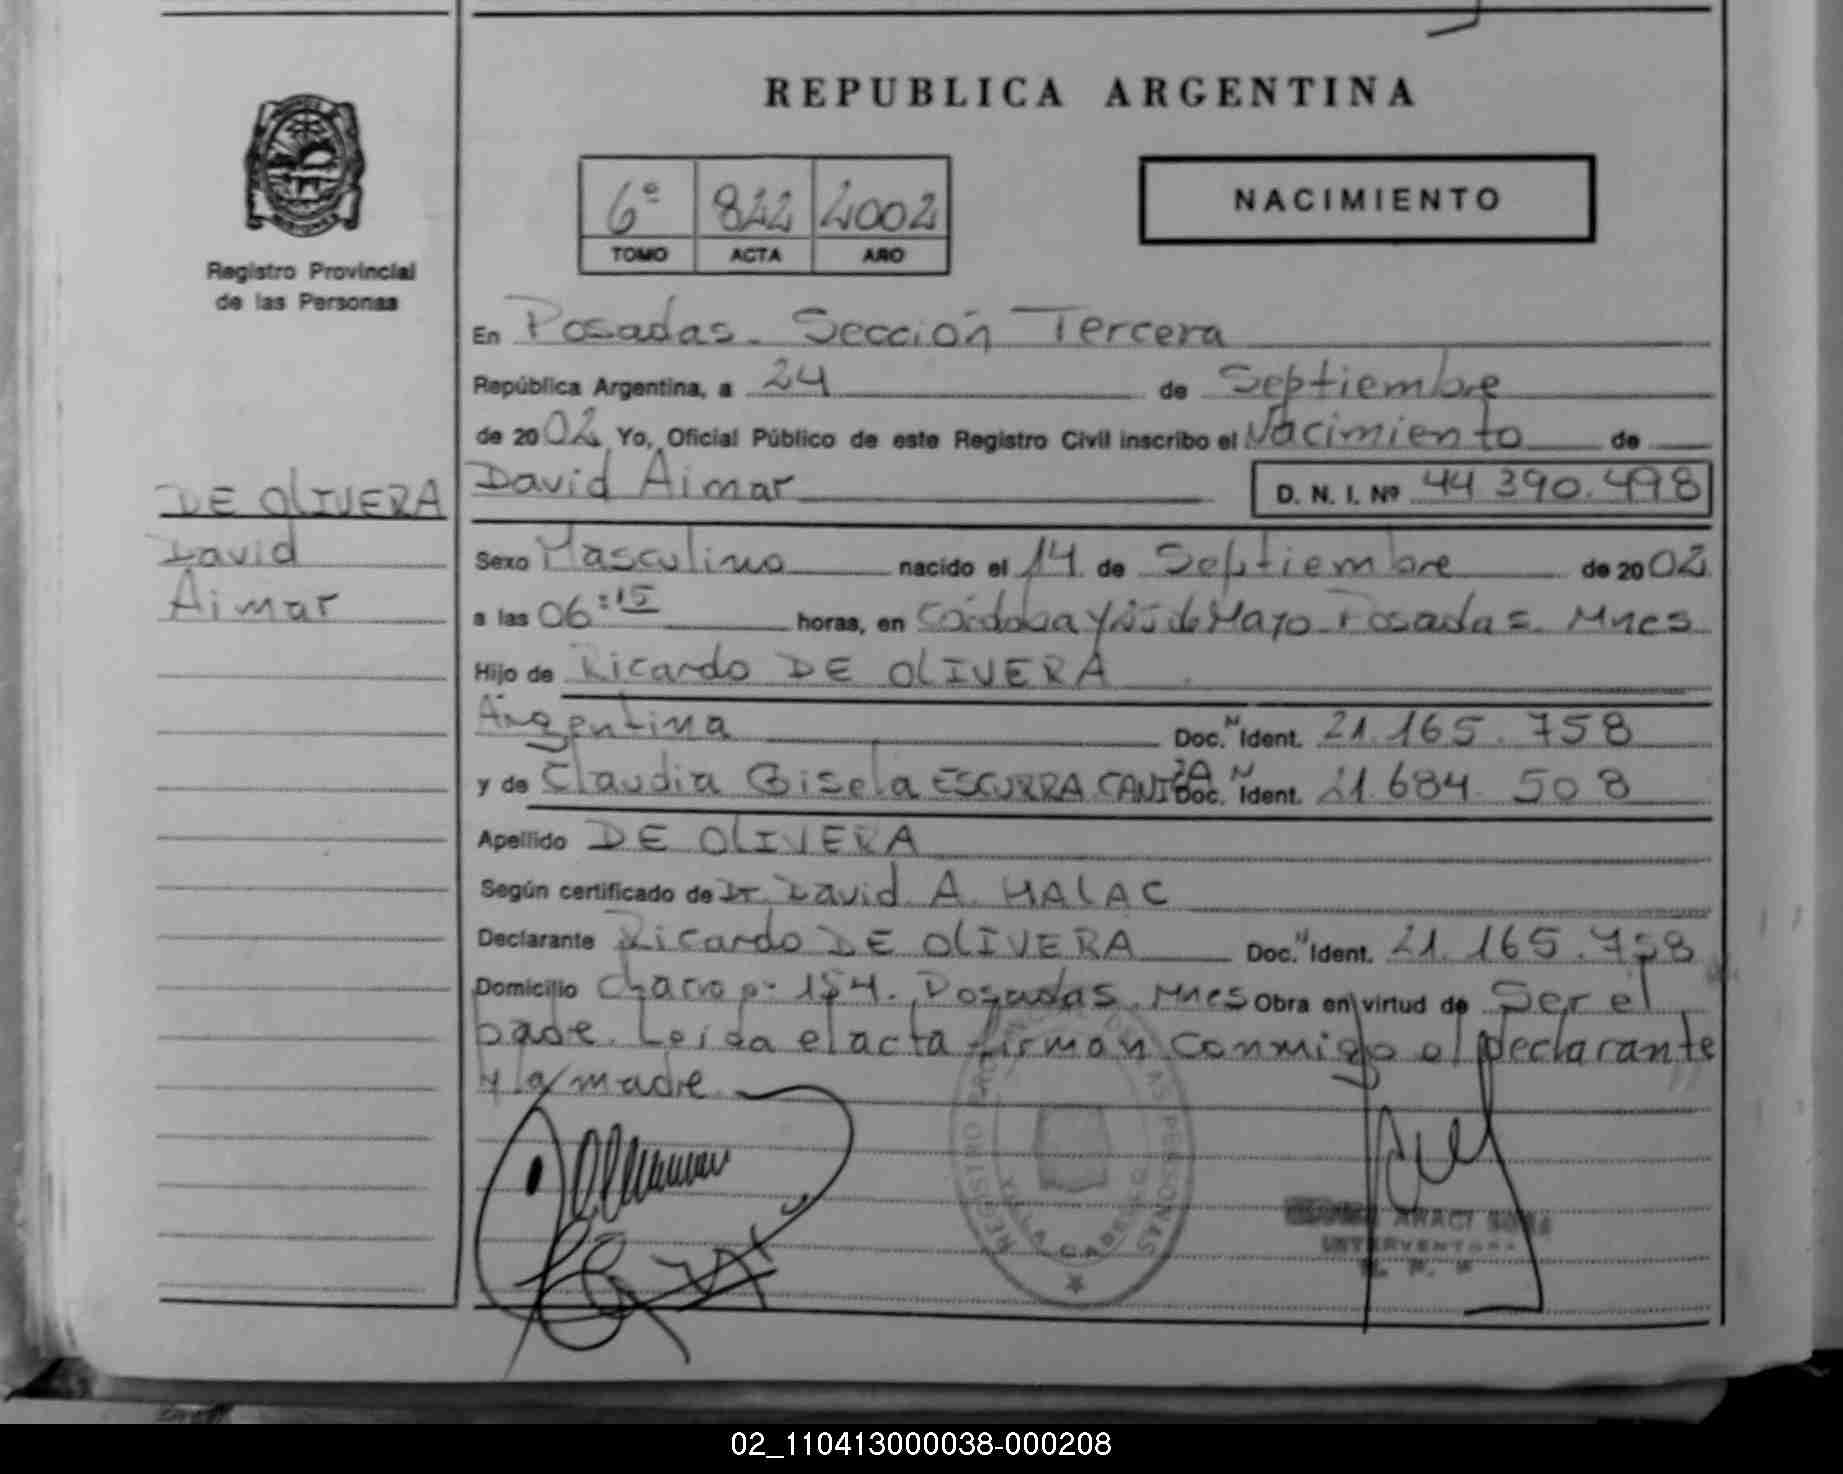 REPUBLICA ARGENTINA
6º 822 2002
TOMO ACTA AÑO
NACIMIENTO
Registro Provincial
de las Personas
En Posadas. Sección Tercera
República Argentina, a 24 de Septiembre
de 2002 Yo, Oficial Público de este Registro Civil inscribo el Nacimiento de
David Aimar D. N. I. Nº 44 390.498
DE OLIVERA
David
Aimar
Sexo Masculino nacido el 14 de Septiembre de 2002
a las 06:15 horas, en Córdoba y de Mayo Posadas. Mnes
Hijo de Ricardo DE OLIVERA
Argentina Doc. N Ident. 21.165.758
y de Claudia Gisela ESCURRA Doc. N Ident. 21.684.508
Apellido DE OLIVERA
Según certificado de Dr. David A. MALAC
Declarante Ricardo DE OLIVERA Doc. N Ident. 21.165.758
Domicilio 154. Posadas. Mnes Obra en virtud de Ser el
padre. Leida el acta firman conmigo el declarante
y la madre.
REGISTRO PROVINCIAL DE LAS PERSONAS
VILLA CABELLO
ARACI
INTERVENTORA
02_110413000038-000208